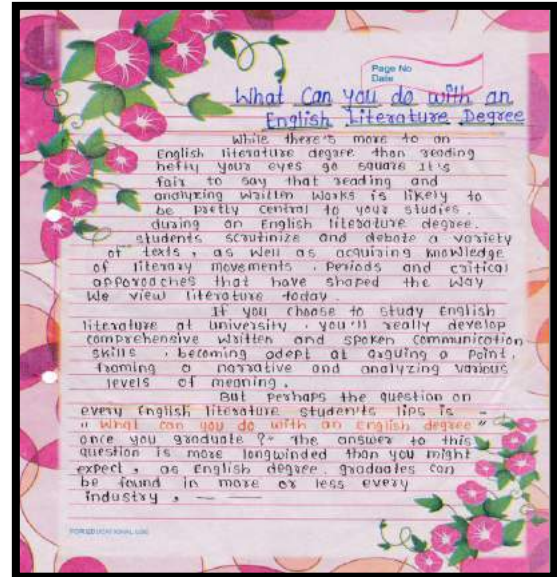 Page No
Date
What Can you do with an
English Literature Degree
While there's more to an
English literature degree than reading
hefty your eyes go square It's
fair to say that reading and
analyzing written works is likely to
be pretty central to your studies.
during an English literature degree.
students scrutinize and debate a variety
of texts, as well as acquiring knowledge
of literary movements. Periods and critical
approaches that have shaped the way
We view literature today.
If you choose to study English
literature at university. you'll really develop
comprehensive written and spoken communication
skills. becoming adept at arguing a point.
framing a narrative and analyzing various
levels of meaning.
But perhaps the question on
every English literature student's lips is -
"What can you do with an English degree"
once you graduate?- the answer to this
question is more longwinded than you might
expect, as English degree. graduates can
be found in more or less every
industry, — —
FOR EDUCATIONAL USE